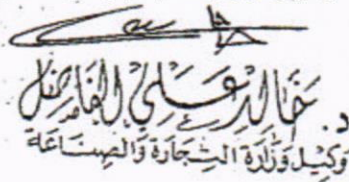 د. خالد علي الفاضل
وكيل وزارة التجارة والصناعة